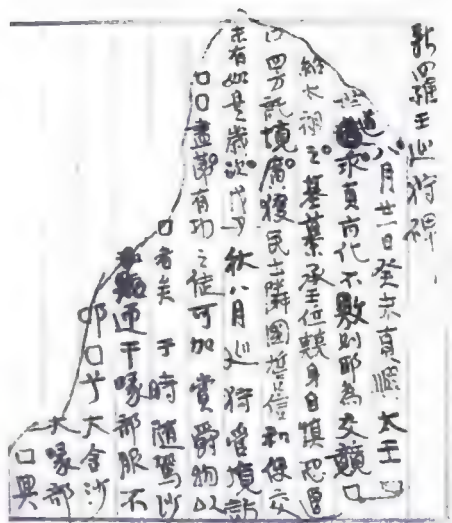 新羅王巡狩碑
八月廿一日癸未真興太王
世道求真玄化不敷則耶為交競□
紹太祖之基纂承王位兢身自慎恐違
四方託境廣獲民土隣國誓信和使交
未有如是歲次戊子秋八月巡狩管境訪
□□盡節有功之徒可加賞爵物以
□者矣于時隨駕沙
迊干喙部服不
□兮大舍沙
大喙部
□興